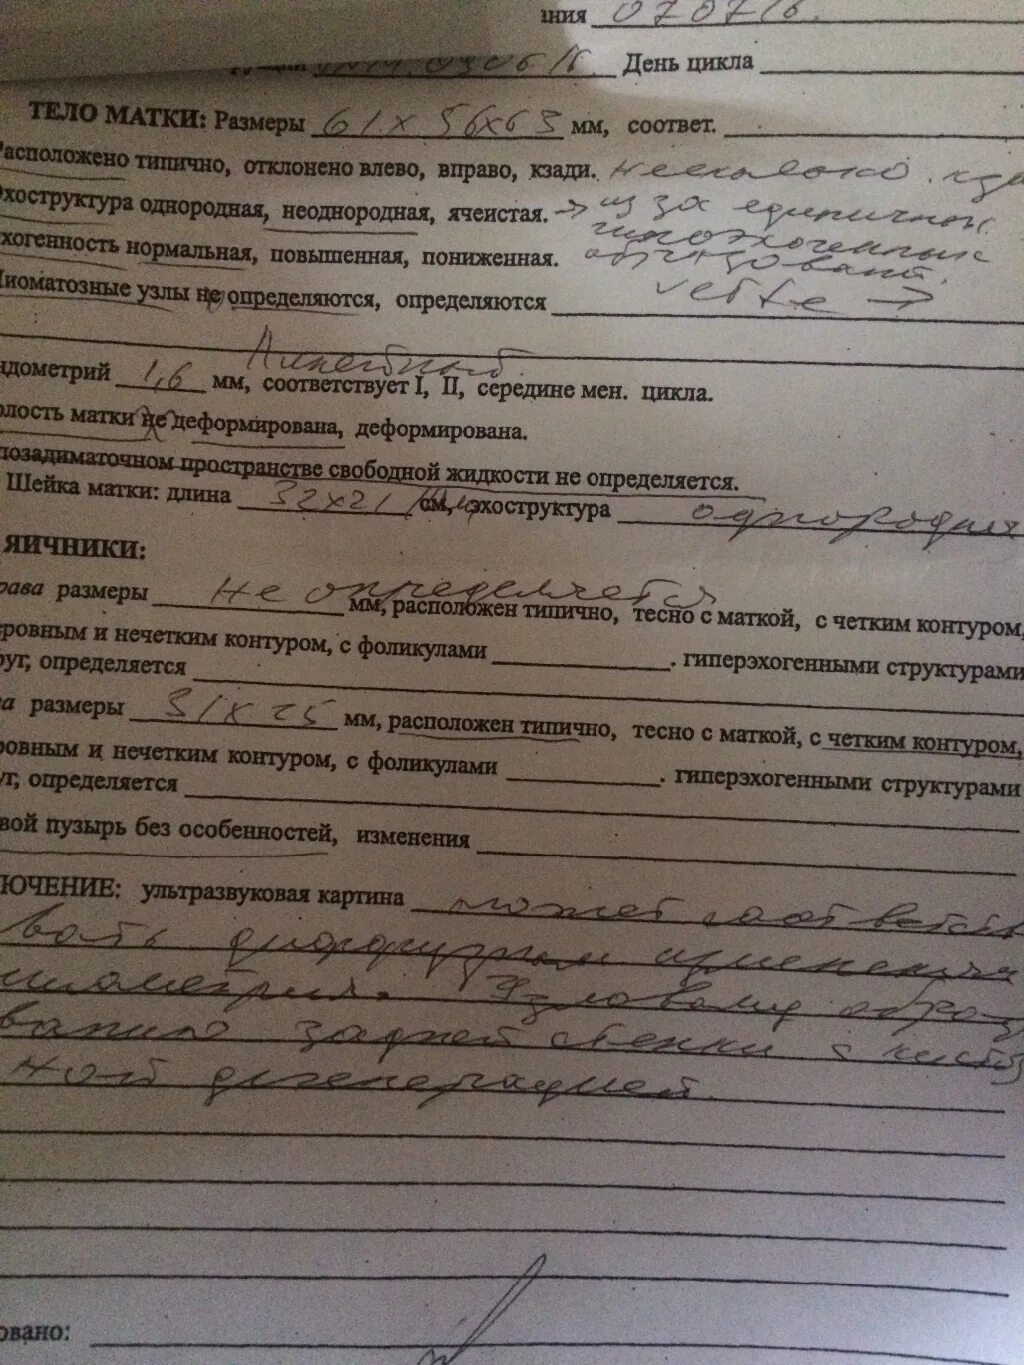 ния 070716.
030616. День цикла
ТЕЛО МАТКИ: Размеры 61х56х63 мм, соответ.
Расположено типично, отклонено влево, вправо, кзади. несколько кза
Эхоструктура однородная, неоднородная, ячеистая. → из за единичных
гипоэхогенных
хогенность нормальная, повышенная, пониженная. образований.
Миоматозные узлы не определяются, определяются verte →
Линейный
ндометрий 1,6 мм, соответствует I, II, середине мен. цикла.
олость матки не деформирована, деформирована.
позадиматочном пространстве свободной жидкости не определяется.
Шейка матки: длина 32х21 мм см, эхоструктура однородная
ЯИЧНИКИ:
рава размеры не определяется мм, расположен типично, тесно с маткой, с четким контуром,
еровным и нечетким контуром, с фоликулами . гиперэхогенными структурами
руг, определяется
ва размеры 31х25 мм, расположен типично, тесно с маткой, с четким контуром,
ровным и нечетким контуром, с фоликулами . гиперэхогенными структурами
уг, определяется
вой пузырь без особенностей, изменения
ЛЮЧЕНИЕ: ультразвуковая картина может соответств
вать диффузным изменениям
миометрия. Узловому образо
ванию задней стенки с кистоз
ной дегенерацией.
овано: